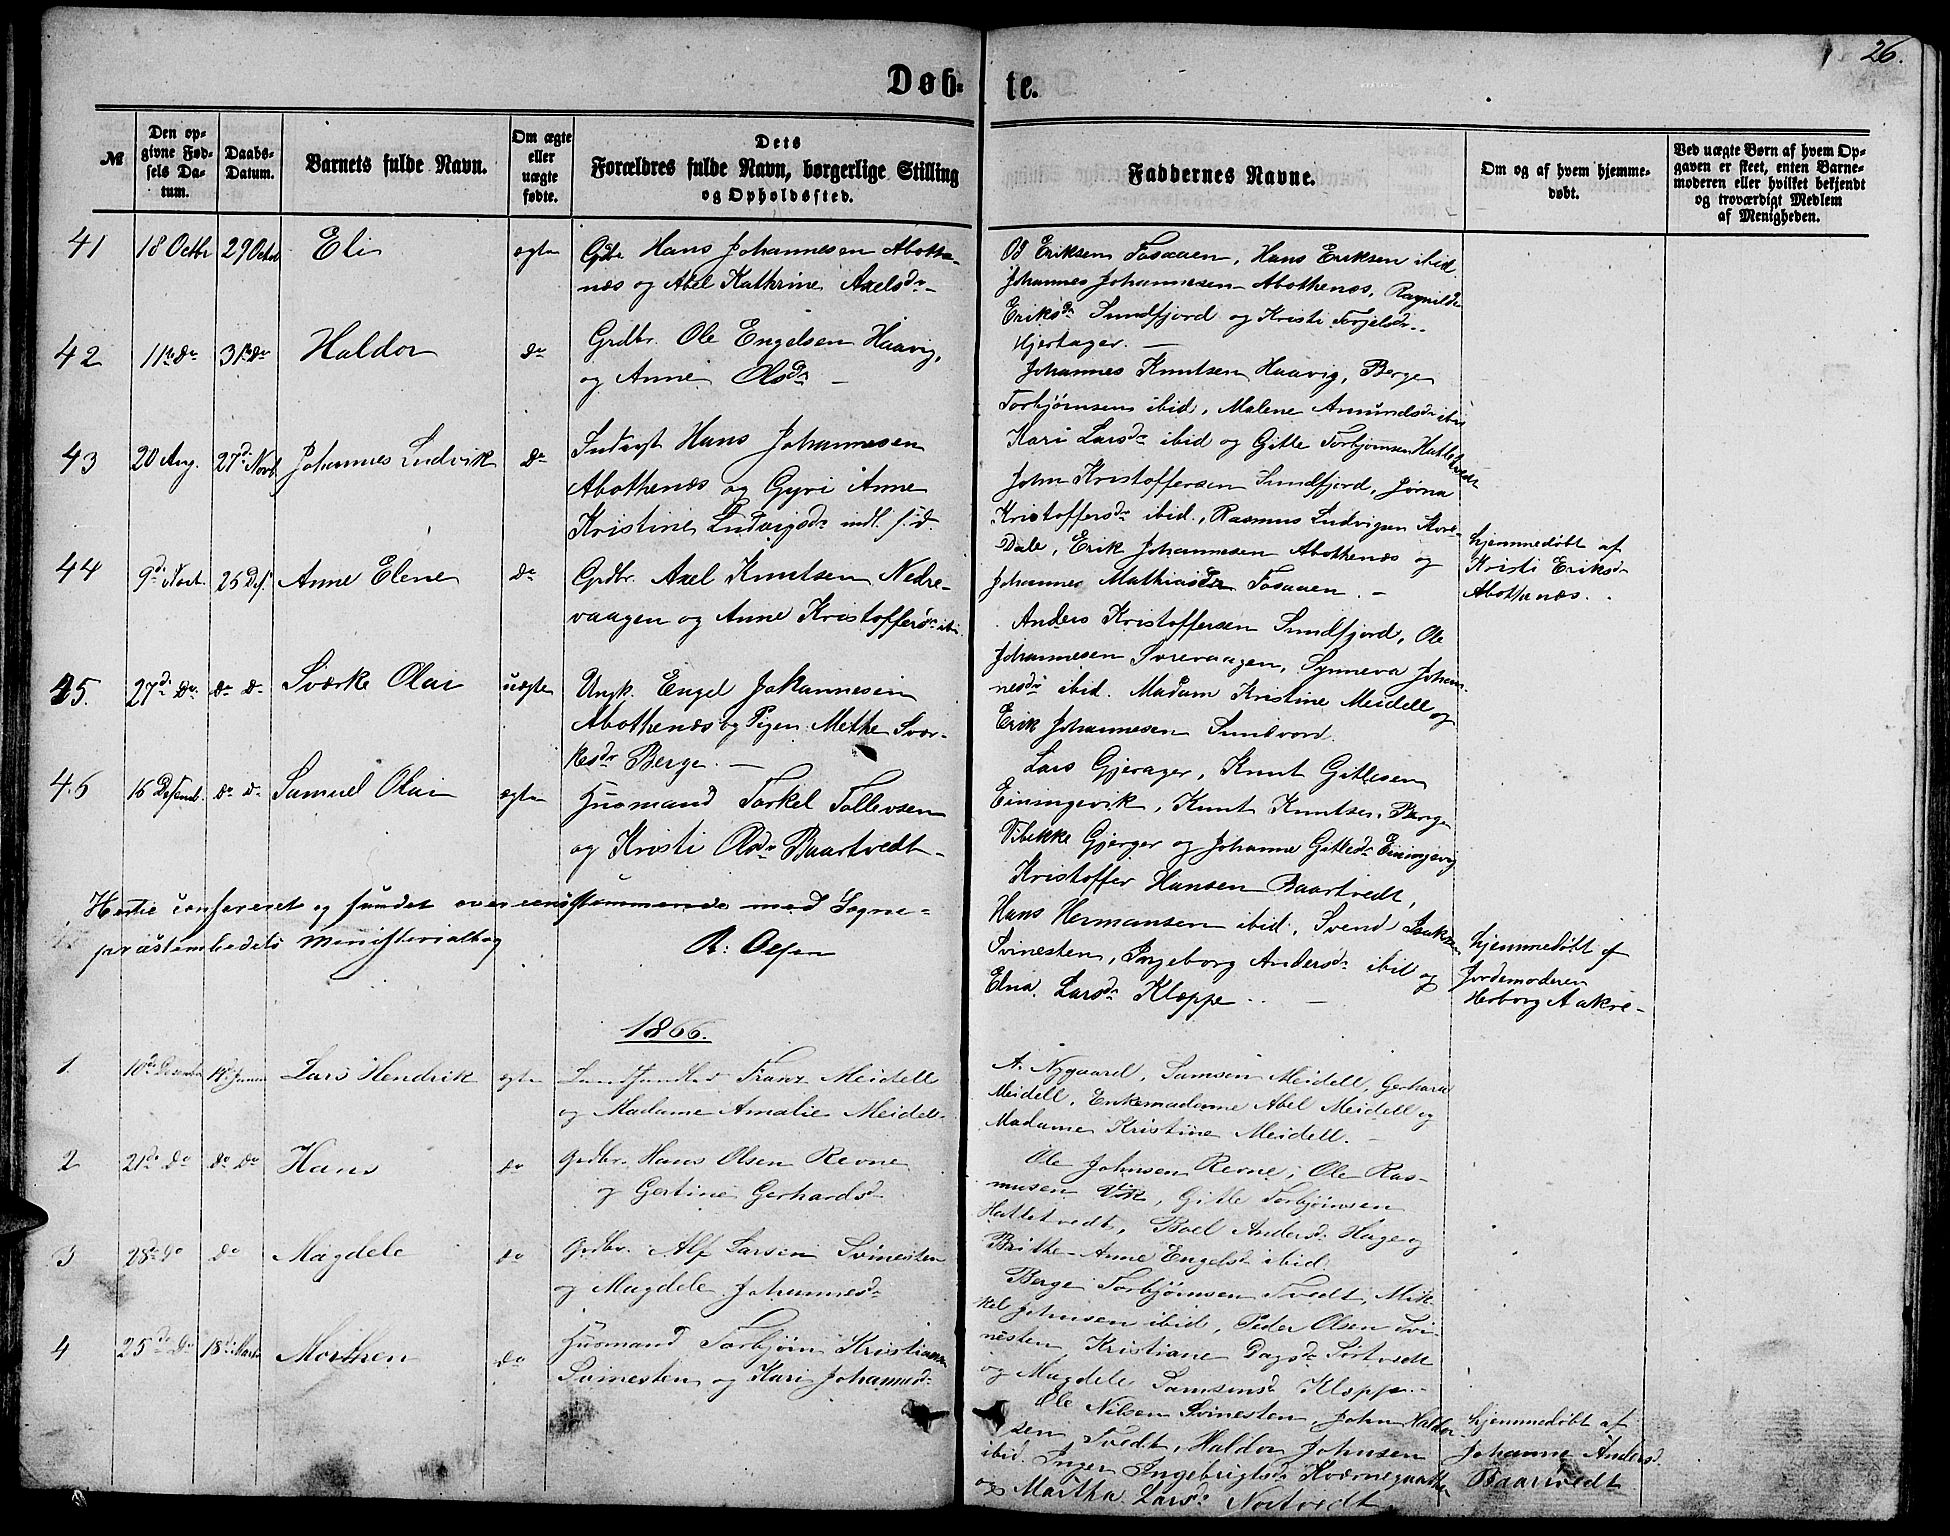 26.
Døb-
te.
№
Den op-
givne Fød-
sels Da-
tum.
Daabs-
Datum.
Barnets fulde Navn.
Om ægte
eller
uægte
fødte.
Dets
Forældres fulde Navn, borgerlige Stilling
og Opholdssted.
Faddernes Navne.
Om og af hvem hjemme-
døbt.
Ved uægte Børn af hvem Op-
gaven er skeet, enten Barne-
moderen eller hvilket bekjendt
og troværdigt Medlem
af Menigheden.
41
18 Octbr
29 Octob
Eli
ægte
Gbr. Hans Johannesen Abothe-
næs og Abel Kathrine Axelsdr
Eriksen Tosaaen, Hans Eriksen ibid.
Johannes Johannesen Abothenæs, Ragnilde
Eriksdr Sundfjord og Kristi Torjelsdr
Hjertager.
42
11te do
31te do
Haldor
do
Grdbr. Ole Engelsen Haavig,
og Anne Olsdr
Johannes Knutsen Haavig, Berge
Torbjørnsen ibid, Malene Amundsdr ibid
Kari Larsdr ibid og Gitle Torbjørnsen Hattetvedt
43
20 Aug.
27d Novb
Johannes Ludvik
do
Indvgt Hans Johannesen
Abothenæs og Gyri Anne
Kristine Ludvigsdr indl. s. d.
John Kristoffersen Sundfjord, Jørna
Kristoffersdr ibid, Rasmus Ludvigsen Store-
Dale, Erik Johannesen Abothenæs og
Johannes Mathiasdr Tosaaen.
hjemmedøbt af
Kristi Eriksdr
Abothenæs.
44
9d Novt.
26 Des.
Anne Elene
do
Grdbr. Axel Knutsen Nedre-
vaagen og Anne Kristoffersdr ibi
Anders Kristoffersen Sundfjord, Ole
Johannesen Svrevaagen, Synneva Johan-
nesdr ibid. Madam Kristine Meidell og
Erik Johannesen Sundvord.
45.
27d do.
do do
Sværke Olai
uægte
Ungk. Engel Johannesen
Abothenæs og Pigen Methe Svær-
kesdr Berge.
Lars Gjerager, Knut Gitlesen
Einingevik, Knut Knutsen Berge
Vibekke Gjerger og Johanne Gitlesdr Einingevig
46
16 Desemb.
do do
Samuel Olai
ægte
Husmand Torkel Tollevsen
og Kristi Olsdr Baartvedt
Kristoffer Hansen Baartvedt,
Hans Hermansen ibid, Svend Isaksen
Svinesten, Ingeborg Andersdr ibid og
Elna Larsdr Kloppe
hjemmedøbt af
Jordemoderen
Herborg Aakre
Hertil confereret og fundet overeensstemmende med Sogne-
præstembedets Ministerialbog
A: Olsen
1866.
1
10de December
14d Januar
Lars Hendrik
ægte
Landhandler Franz Meidell
og Madame Amalie Meidell
A. Nygaard, Samson Meidell, Gerhard
Meidell, Enkemadame Abel Meidell og
Madame Kristine Meidell.
2
21de do
do do
Hans
do
Grdbr. Hans Olsen Revne
og Gertine Gerhardsd
Ole Johnsen Revne, Ole Ras-
musen Vik, Gitle Torbjørnsen
Hattetvedt, Boel Andersd Hage og
Brithe Anne Engelsd ibid
3
28de do
do
Magdele
do
Grdbr. Alf Larsen Svinesten
og Magdele Johannesdr
Berge Torbjørnsen Tvedt, Mik-
kel Johnsen ibid, Peder Olsen Svi-
nesten Kristiane Dagsdr Tortvedt
og Magdele Samsonsd Kloppe.
4
25de do
18d Marts
Morthen
do
Husmand Torbjørn Kristiansen
Svinesten og Kari Johannesdr
Ole Nilsen Svinesten, John Haldor-
sen Tvedt, Haldor Johnsen
ibid. Inger Ingebrigtsdr Kværnegaarden
og Martha Larsdr Nortvedt.
hjemmedøbt af
Johanne Andersd.
Baartvedt